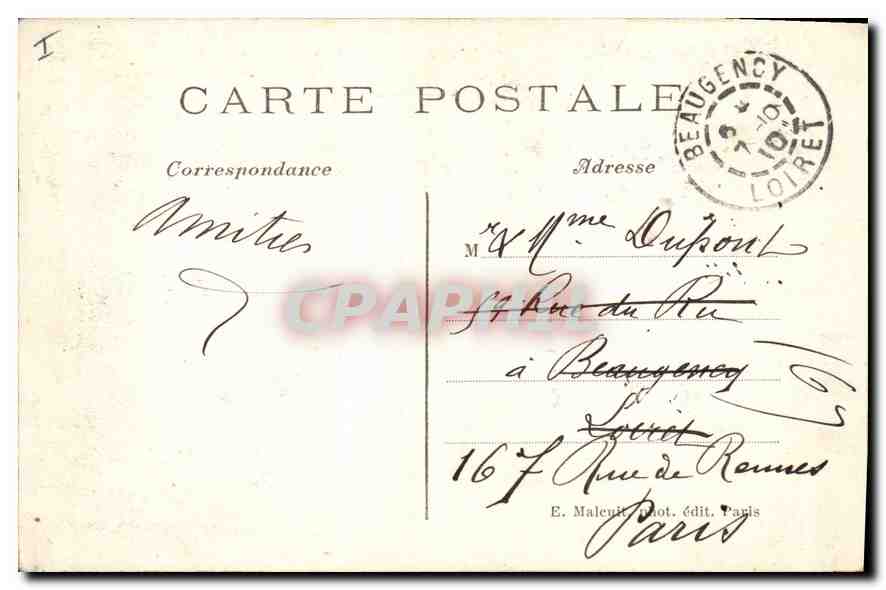 I
CARTE POSTALE
BEAUGENCY
LOIRET
Correspondance
Adresse
Amities
M r & Mme Dupont
59 Rue du Ru
à Beaugency
Loiret
167 Rue de Rennes
Paris
E. Malcuit, phot. édit. Paris
CPAPHIL